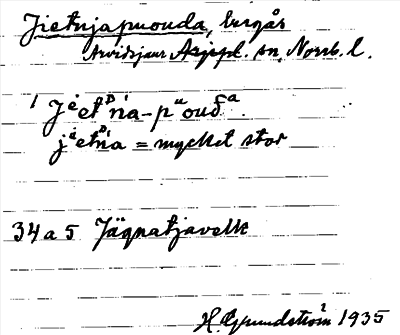 Jietnjapuouda, bergår
Arvidsjaur Arjepl. sn, Norrb. l.
1 Jėetᴰńa-pᵘoudᵃ.
jėetᴰńa = mycket stor
34 a 5 Jäqnatjavelk
H. Grundström 1935